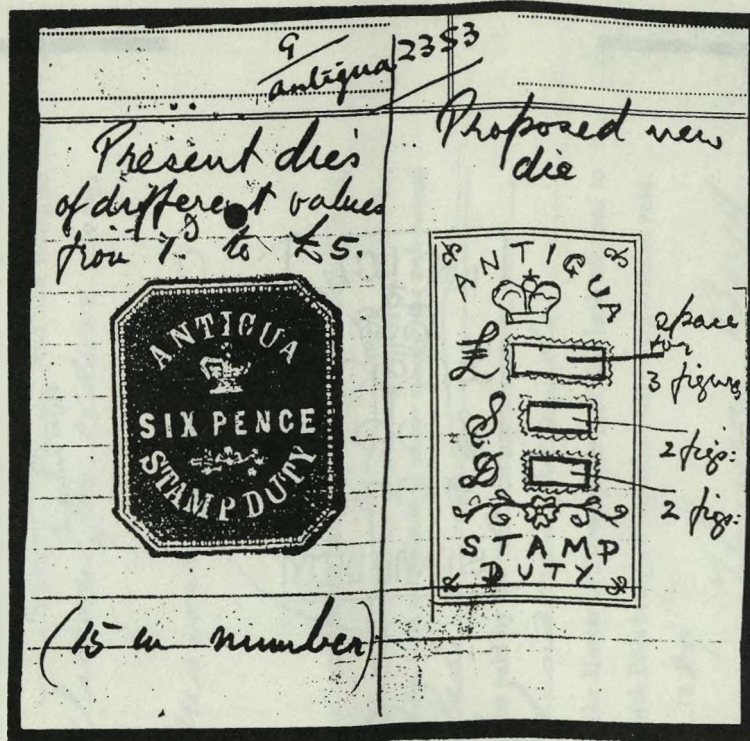 G
antigua 2353
Present dies
of different values
from 1.ᴰ to £5.
ANTIGUA
SIX PENCE
STAMP DUTY
(15 in number)
Proposed new
die
ANTIGUA
£
S
D
STAMP
DUTY
space
for
3 figures
2 figs:
2 figs: